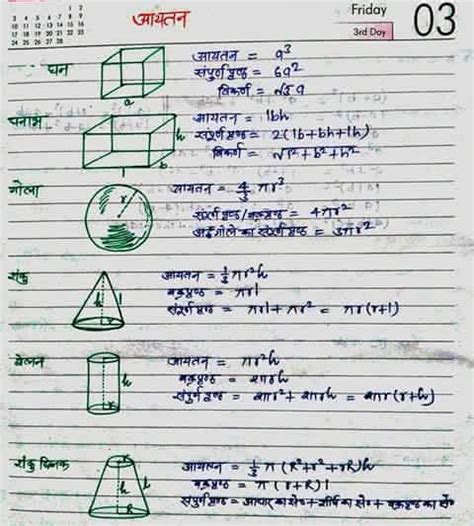 1 2
3 4 5 6 7 8 9
10 11 12 13 14 15 16
17 18 19 20 21 22 23
24 25 26 27 28 29 30
आयतन
Friday
3rd Day
03
घन
आयतन = a³
संपूर्ण पृष्ठ = 6a²
विकर्ण = √3 a
a
घनाभ
आयतन = lbh
संपूर्ण पृष्ठ = 2(lb+bh+lh)
विकर्ण = √l²+b²+h²
h
l
b
गोला
आयतन = 4/3 πr³
संपूर्ण पृष्ठ/वक्रपृष्ठ = 4πr²
अर्द्धगोले का संपूर्ण पृष्ठ = 3πr²
r
शंकु
आयतन = 1/3 πr²h
वक्रपृष्ठ = πrl
संपूर्ण पृष्ठ = πrl+πr² = πr(r+l)
h
l
r
बेलन
आयतन = πr²h
वक्रपृष्ठ = 2πrh
संपूर्ण पृष्ठ = 2πr²+2πrh = 2πr(r+h)
h
r
शंकु छिन्नक
आयतन = 1/3 π(R²+r²+rR)h
वक्रपृष्ठ = π(r+R)l
संपूर्ण पृष्ठ = आधार का क्षे०+शीर्ष का क्षे०+वक्रपृष्ठ का क्षे०
r
h
l
R